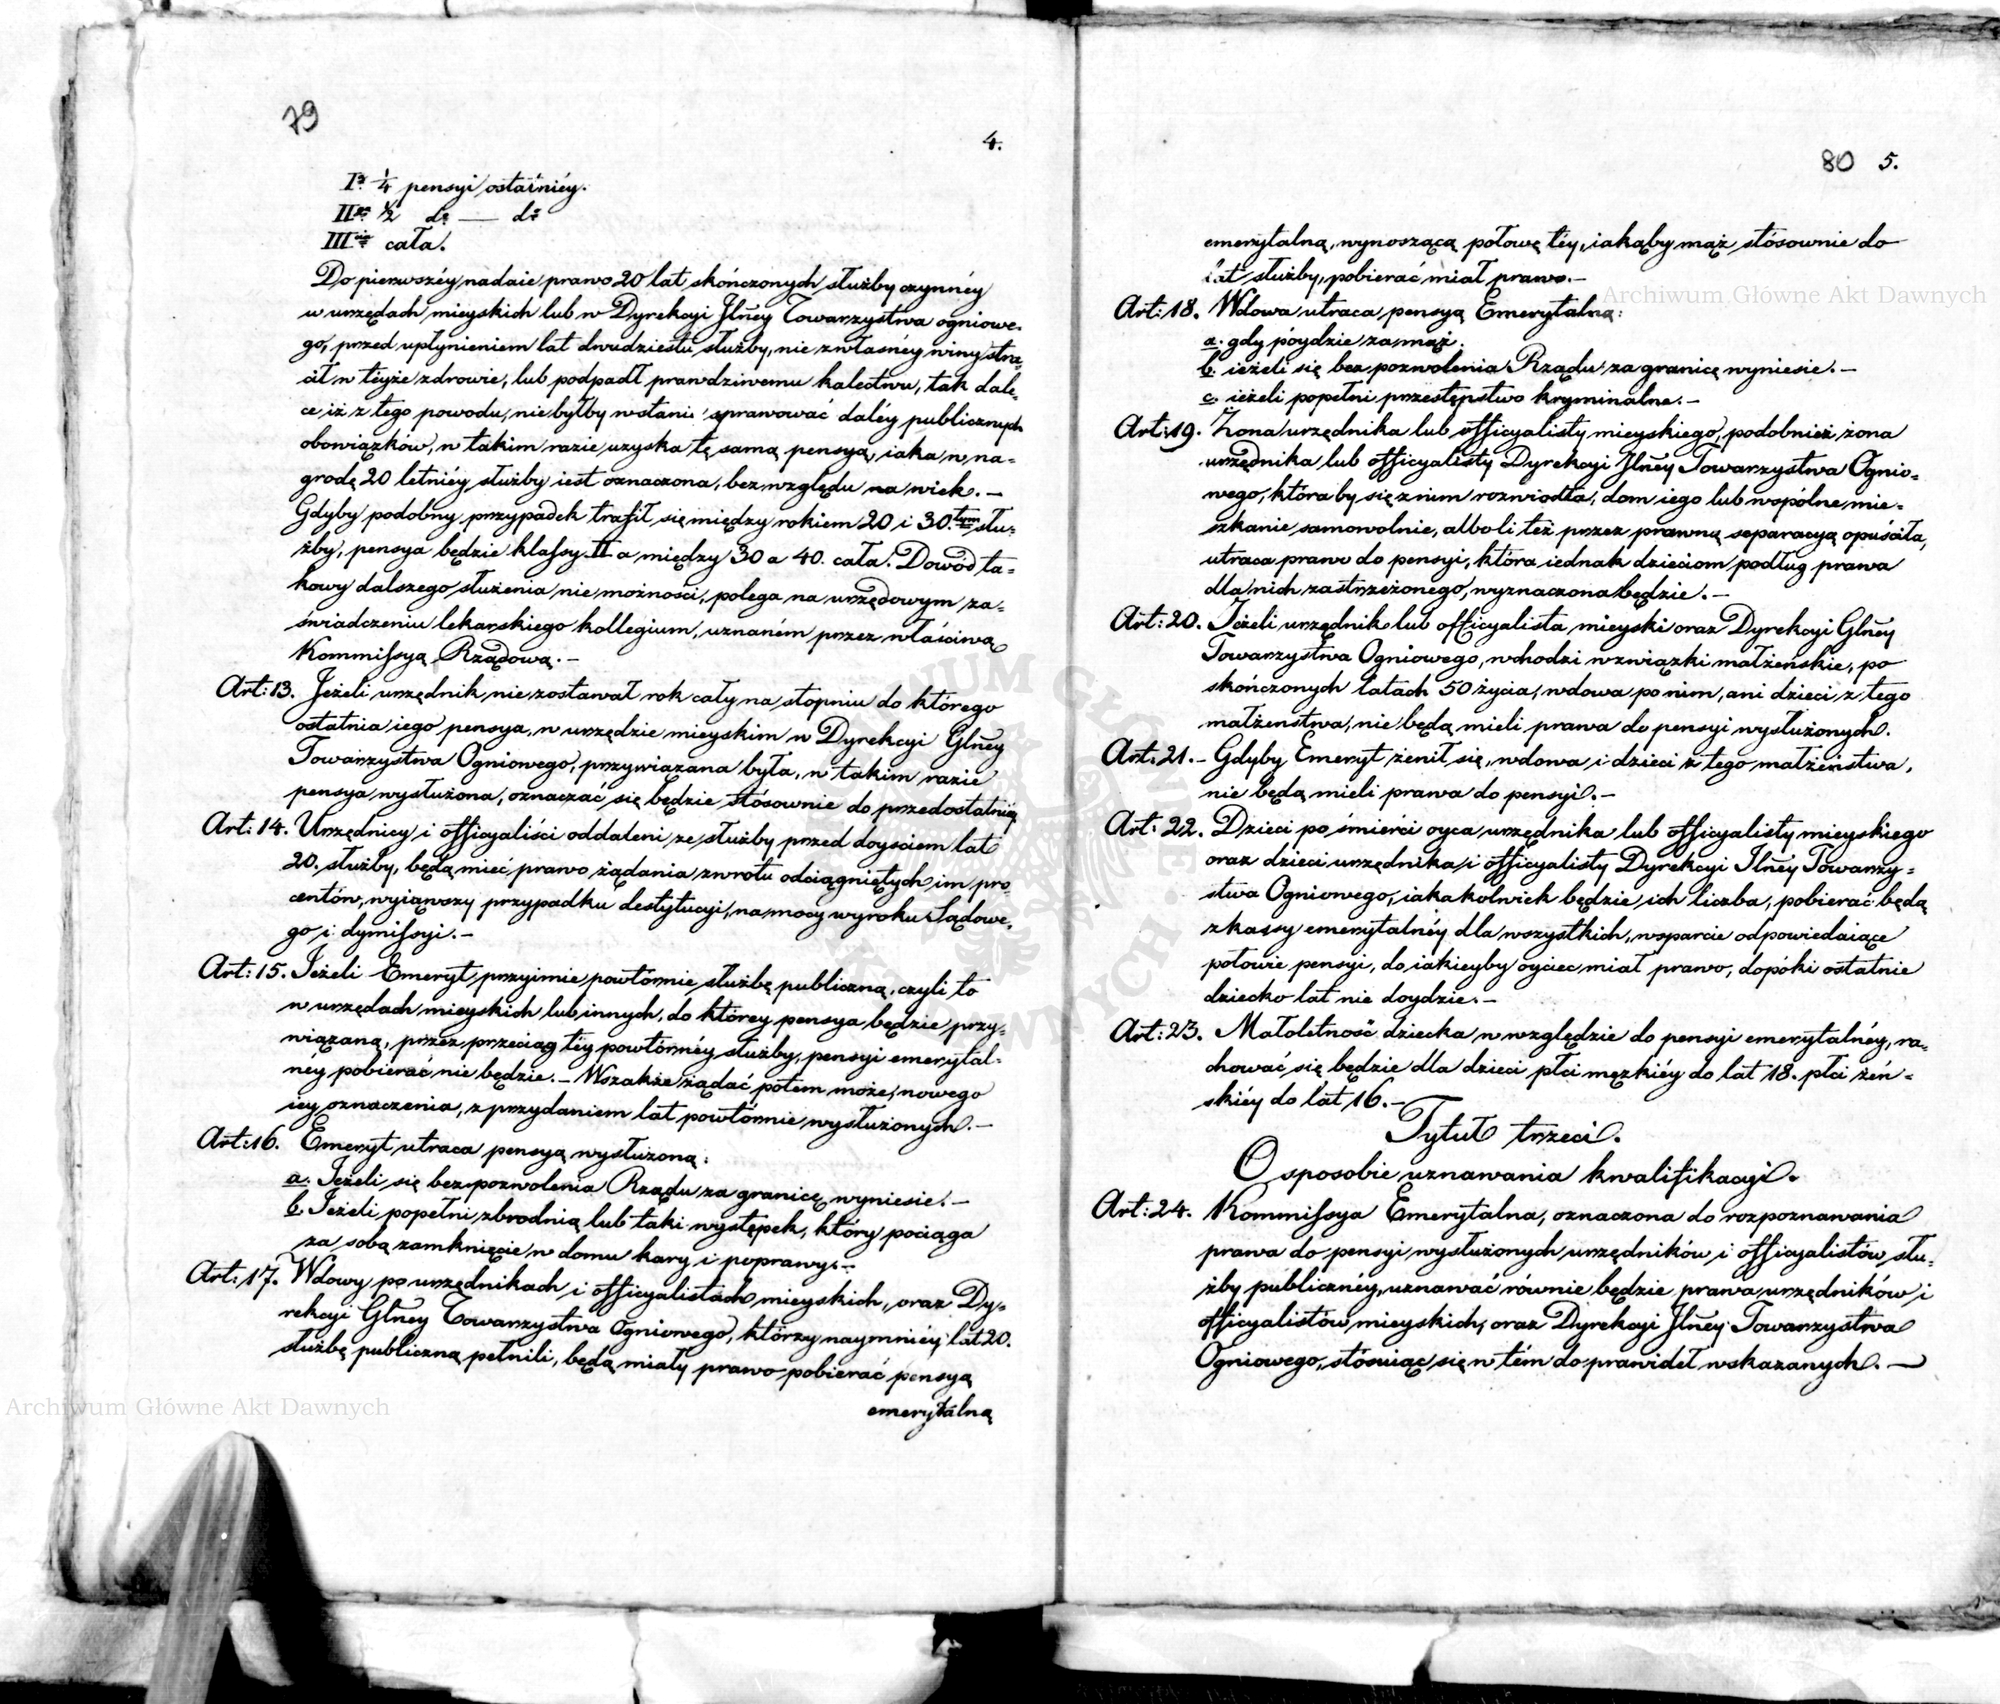 79
4.
Iª ¼ pensyi ostatniéy.
IIga ½ do — do
IIIcia cała.
Do pierwszéy nadaie prawo 20 lat skończonych służby czynnéy
w urzędach mieyskich lub w Dyrekcyi Jlney Towarzystwa ogniowe-
go, przed upłynieniem lat dwudziestu służby, nie z własnéy winy stra-
cił w teyże zdrowie, lub podpadł prawdziwemu kalectwu, tak dale-
ce iż z tego powodu, nie byłby w stanie sprawować daléy publicznych
obowiązków, w takim razie uzyska tę samą pensyą, iaka w na-
grodę 20 letniéy służby iest oznaczona, bez względu na wiek. —
Gdyby podobny przypadek trafił się między rokiem 20 i 30.tym słu-
żby, pensya będzie klassy II a między 30 a 40. cała. Dowód ta-
kowy dalszego służenia niemożności, polega na urzędowym za-
świadczeniu lekarskiego kollegium, uznaném przez właściwą
Kommissyą Rządową. —
Art: 13. Jeżeli urzędnik nie zostawał rok cały na stopniu do którego
ostatnia iego pensya, w urzędzie mieyskim w Dyrekcyi Głney
Towarzystwa Ogniowego, przywiązana była, w takim razie
pensya wysłużona, oznaczać się będzie stósownie do przedostatniéy
Art: 14. Urzędnicy i officyaliści oddaleni ze służby przed doyściem lat
20. służby, będą mieć prawo żądania zwrotu odciągniętych im pro
centów, wyiąwszy przypadku destytucyi, na mocy wyroku Sądowe-
go i dymissyi. —
Art: 15. Jeżeli Emeryt przyimie powtórnie służbę publiczną, czyli to
w urzędach mieyskich lub innych, do którey pensya będzie przy-
wiązaną, przez przeciąg téy powtórnéy służby, pensyi emerytal-
néy pobierać nie będzie. — Wszakże żądać potem może, nowego
iey oznaczenia, z przydaniem lat powtórnie wysłużonych. —
Art: 16. Emeryt utraca pensyą wysłużoną:
a. Jeżeli się bez pozwolenia Rządu za granicę wyniesie. —
b. Jeżeli popełni zbrodnią lub taki występek, który pociąga
za sobą zamknięcie w domu kary i poprawy. —
Art: 17. Wdowy po urzędnikach i officyalistach mieyskich, oraz Dy-
rekcyi Głney Towarzystwa Ogniowego, którzy naymniéy lat 20.
służbę publiczną pełnili, będą miały prawo pobierać pensyą
emerytalną
80 5.
emerytalną, wynoszącą połowę téy, iakąby mąż stósownie do
lat służby, pobierać miał prawo. —
Art: 18. Wdowa utraca pensyą Emerytalną:
a. gdy póydzie za mąż.
b. ieżeli się bez pozwolenia Rządu za granicę wyniesie. —
c. ieżeli popełni przestępstwo kryminalne. —
Art: 19. Żona urzędnika lub officyalisty mieyskiego, podobnież żona
urzędnika lub officyalisty Dyrekcyi Jlney Towarzystwa Ognio-
wego, która by się z nim rozwiodła, dom iego lub wspólne mie-
szkanie samowolnie, alboli też przez prawną separacyą opuściła,
utraca prawo do pensyi, która iednak dzieciom podług prawa
dla nich zastrzeżonego, wyznaczona będzie. —
Art: 20. Jeżeli urzędnik lub officyalista mieyski oraz Dyrekcyi Głney
Towarzystwa Ogniowego, wchodzi w związki małżenskie, po
skończonych latach 50 życia, wdowa po nim, ani dzieci z tego
małżenstwa, nie będą mieli prawa do pensyi wysłużonych.
Art: 21. – Gdyby Emeryt żenił się, wdowa i dzieci z tego małżeństwa,
nie będą mieli prawa do pensyi. —
Art: 22. Dzieci po śmierci oyca urzędnika lub officyalisty mieyskiego
oraz dzieci urzędnika i officyalisty Dyrekcyi Jlney Towarzy-
stwa Ogniowego, iakakolwiek będzie ich liczba, pobierać będą
z kassy emerytalnéy dla wszystkich, wsparcie odpowiedaiące
połowie pensyi, do iakieyby oyciec miał prawo, dopóki ostatnie
dziecko lat nie doydzie. —
Art: 23. Małoletność dziecka w względzie do pensyi emerytalnéy, ra-
chować się będzie dla dzieci płci męzkiéy do lat 18. płci żeń-
skiéy do lat 16. —
Tytuł trzeci.
O sposobie uznawania kwalifikacyi.
Art: 24. Kommissya Emerytalna, oznaczona do rozpoznawania
prawa do pensyi wysłużonych urzędników i officyalistów słu-
żby publicznéy, uznawać równie będzie prawa urzędników i
officyalistów mieyskich, oraz Dyrekcyi Jlney Towarzystwa
Ogniowego, stósuiąc się w tém do prawideł wskazanych. —
Archiwum Główne Akt Dawnych
Archiwum Główne Akt Dawnych